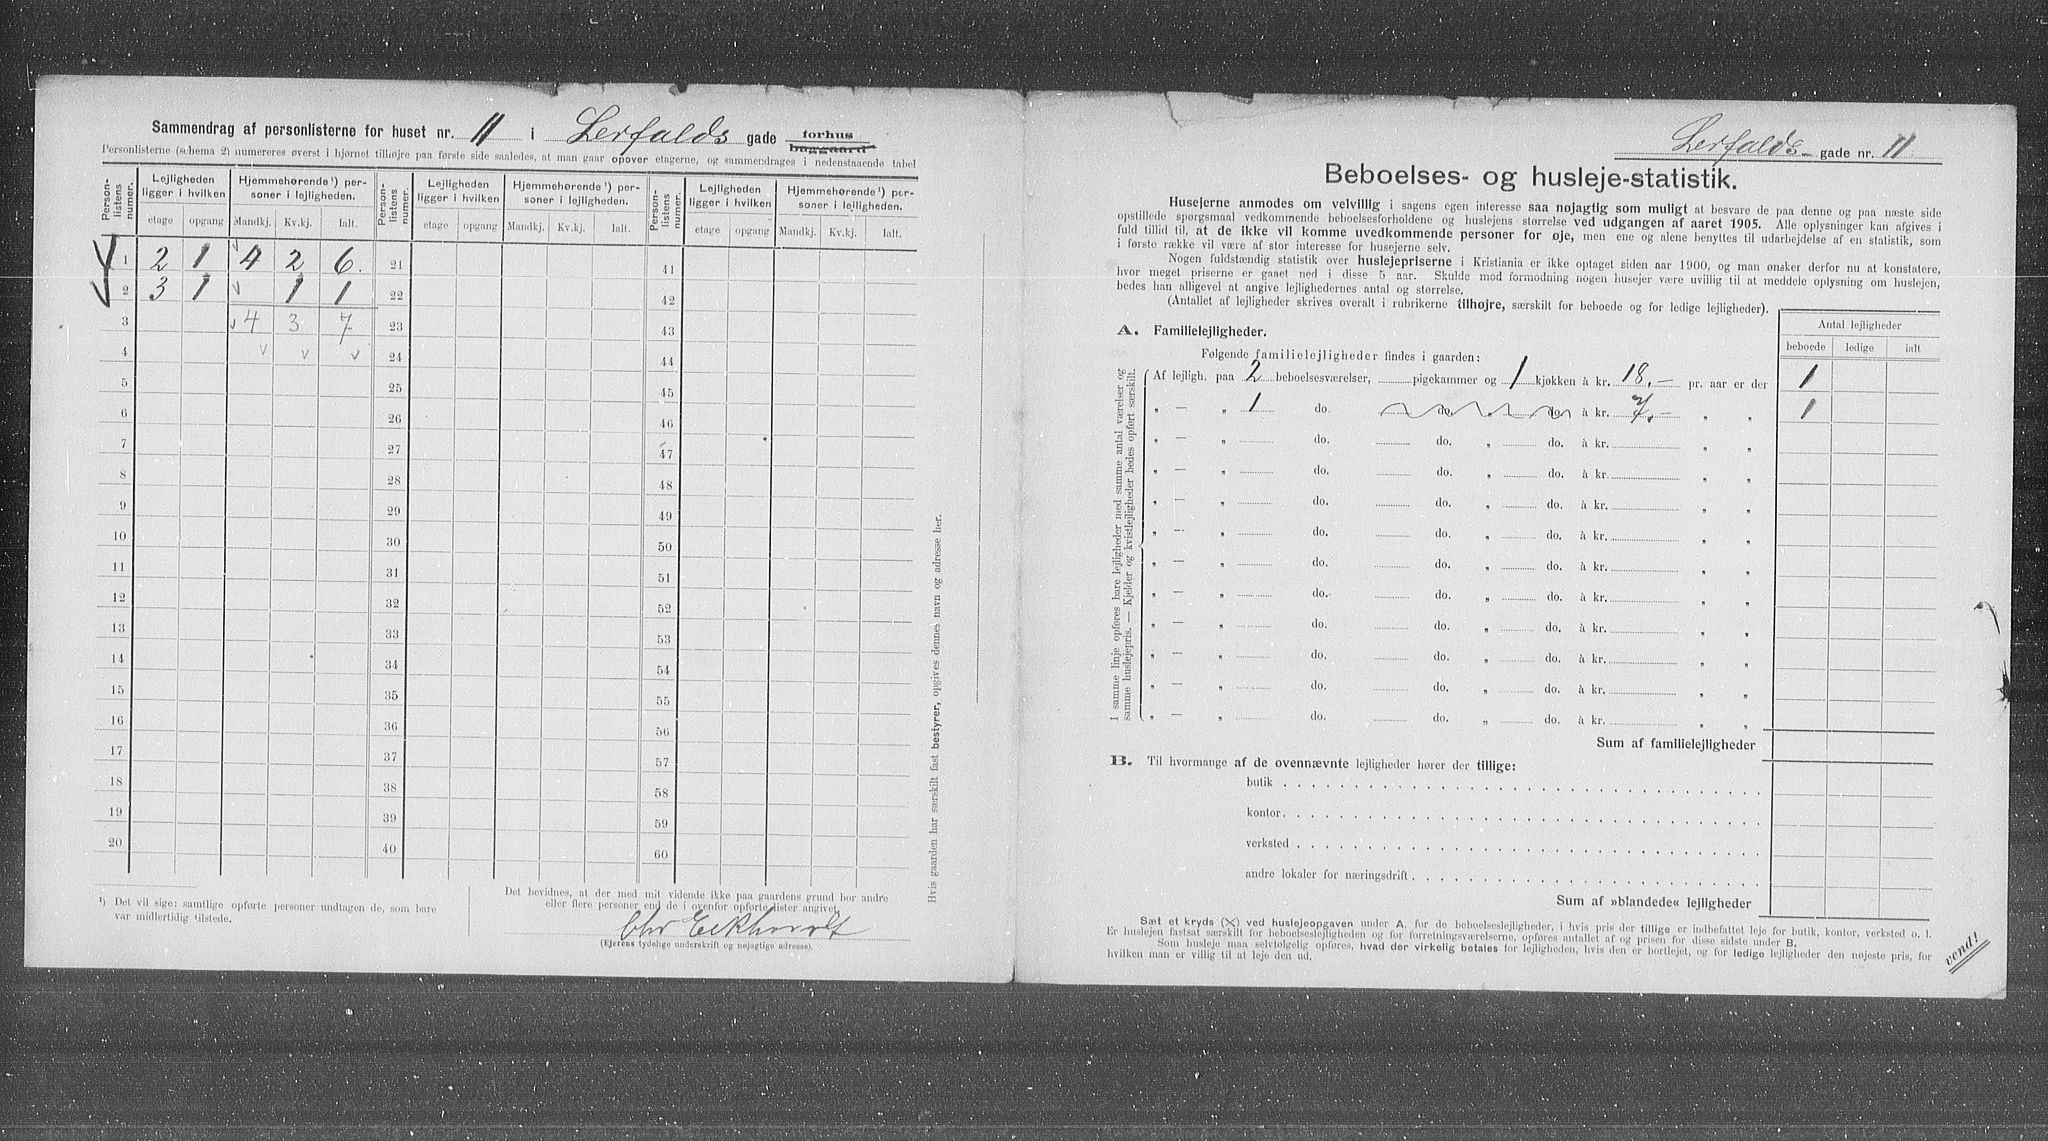 Sammendrag af personlisterne for huset nr. 11 i Lerfalds gade forhus baggaard
Personlisterne (schema 2) numereres øverst i hjørnet tilhøjre paa første side saaledes, at man gaar opover etagerne, og sammendrages i nedenstaaende tabel
Person-listens numer. Lejligheden ligger i hvilken Hjemmehørende¹) personer i lejligheden. Person-listens numer. Lejligheden ligger i hvilken Hjemmehørende¹) personer i lejligheden. Person-listens numer. Lejligheden ligger i hvilken Hjemmehørende¹) personer i lejligheden.
etage opgang Mandkj. Kv.kj. Ialt. etage opgang Mandkj. Kv.kj. Ialt. etage opgang Mandkj. Kv.kj. Ialt.
1 2 1 4 2 6. 21 41
2 3 1 1 1 22 42
3 4 3 7 23 43
4 24 44
5 25 45
6 26 46
7 27 47
8 28 48
9 29 49
10 30 50
11 31 51
12 32 52
13 33 53
14 34 54
15 35 55
16 36 56
17 37 57
18 38 58
19 39 59
20 40 60
¹) Det vil sige: samtlige opførte personer undtagen de, som bare
var midlertidig tilstede.
Det bevidnes, at der med mit vidende ikke paa gaardens grund bor andre
eller flere personer end de i ovenfor opførte lister angivet.
Chr Eckhardt
(Ejerens tydelige underskrift og nøjagtige adresse).
Hvis gaarden har særskilt fast bestyrer, opgives dennes navn og adresse her.
Lerfalds gade nr. 11
Beboelses- og husleje-statistik.
Husejerne anmodes om velvillig i sagens egen interesse saa nøjagtig som muligt at besvare de paa denne og paa næste side
opstillede spørgsmaal vedkommende beboelsesforholdene og huslejens størrelse ved udgangen af aaret 1905. Alle oplysninger kan afgives i
fuld tillid til, at de ikke vil komme uvedkommende personer for øje, men ene og alene benyttes til udarbejdelse af en statistik, som
i første række vil være af stor interesse for husejerne selv.
Nogen fuldstændig statistik over huslejepriserne i Kristiania er ikke optaget siden aar 1900, og man ønsker derfor nu at konstatere,
hvor meget priserne er gaaet ned i disse 5 aar. Skulde mod formodning nogen husejer være uvillig til at meddele oplysning om huslejen,
bedes han alligevel at angive lejlighedernes antal og størrelse.
(Antallet af lejligheder skrives overalt i rubrikerne tilhøjre, særskilt for beboede og for ledige lejligheder).
Antal lejligheder
beboede ledige ialt
A. Familielejligheder.
Følgende familielejligheder findes i gaarden:
I samme linje opføres bare lejligheder med samme antal værelser og
samme huslejepris. — Kjelder og kvistlejligheder bedes opført særskilt.
Af lejligh. paa 2 beboelsesværelser, pigekammer og 1 kjøkken à kr. 18.- pr. aar er der 1
„ — „ 1 do. do. „ do. à kr. 7.- „ „ 1
„ — „ do. do. „ do. à kr. „ „
„ — „ do. do. „ do. à kr. „ „
„ — „ do. do. „ do. à kr. „ „
„ — „ do. do. „ do. à kr. „ „
„ — „ do. do. „ do. à kr. „ „
„ — „ do. do. „ do. à kr. „ „
„ — „ do. do. „ do. à kr. „ „
„ — „ do. do. „ do. à kr. „ „
„ — „ do. do. „ do. à kr. „ „
„ — „ do. do. „ do. à kr. „ „
Sum af familielejligheder
B. Til hvormange af de ovennævnte lejligheder hører der tillige:
butik
kontor
verksted
andre lokaler for næringsdrift
Sum af »blandede« lejligheder
Sæt et kryds (×) ved huslejeopgaven under A. for de beboelseslejligheder, i hvis pris der tillige er indbefattet leje for butik, kontor, verksted o. l.
Er huslejen fastsat særskilt for beboelseslejligheden og for forretningsværelserne, opføres antallet af og prisen for disse sidste under B.
Som husleje maa selvfølgelig opføres, hvad der virkelig betales for lejligheden, hvis den er bortlejet, og for ledige lejligheder den nøjeste pris, for
hvilken man er villig til at leje den ud.
vend!